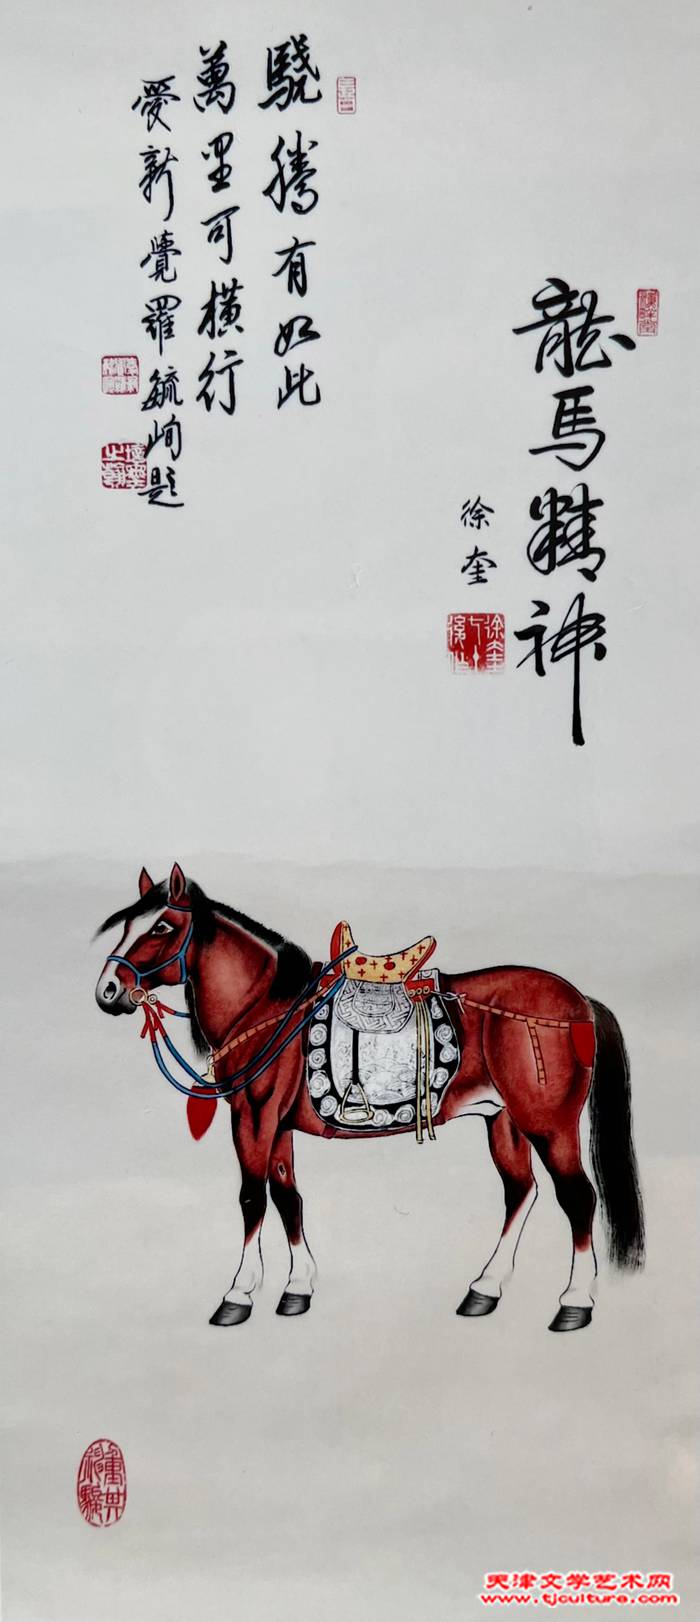 龍馬精神
徐奎
驍騰有如此
萬里可橫行
愛新覺羅毓峋題
天津文学艺术网
www.tjculture.com